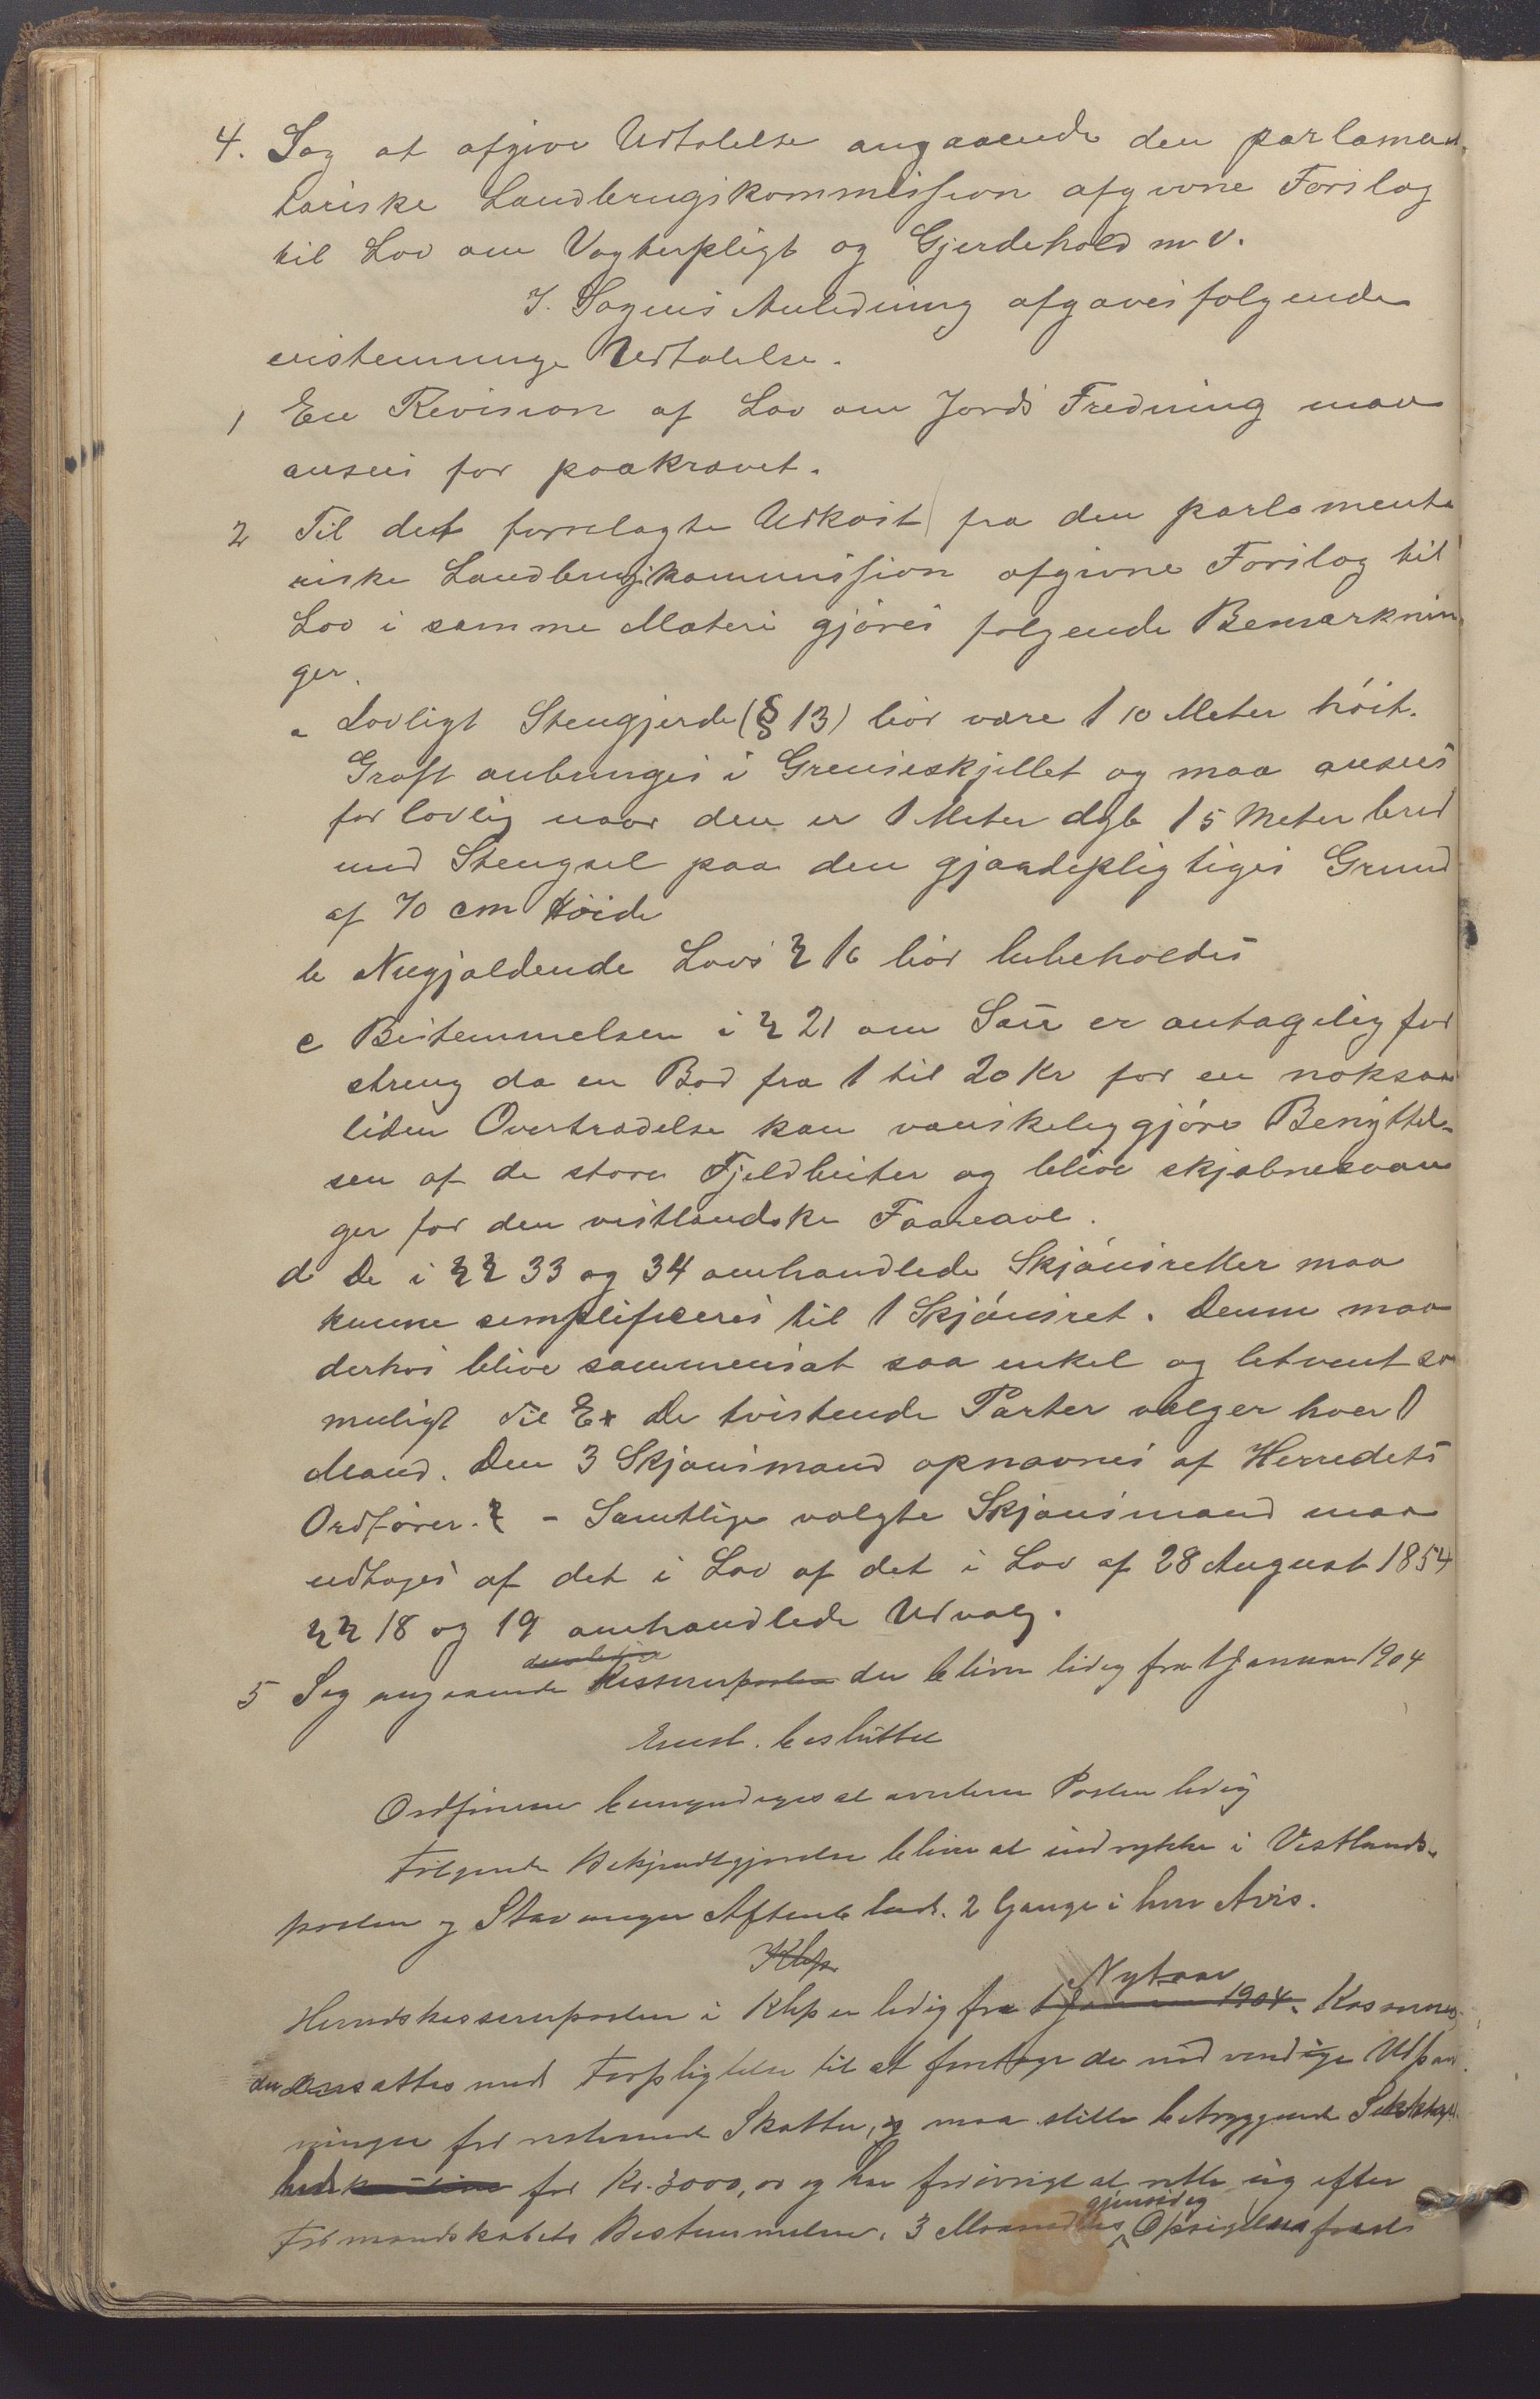 4. Sag at afgive Udtalelse angaaende den parlamen-
tariske Landbrugskommission afgivne Forslag
til Lov om Vogterpligt og Gjerdehold m.v.
I Sagens Anledning afgaves følgende
enstemmige Udtalelse.
1 En Revision af Lov om Jords Fredning maa
ansees for paakrævet.
2 Til det forelagte Udkast fra den parlamenta
riske Landbrugskommission afgivne Forslag til
Lov i samme Materi gjøres følgende Bemærknin
ger.
a Lovligt Stengjerde (§ 13) bør være 1 10 Meter høit.
Grøft anbringes i Grenseskjellet og maa ansees
for lovlig naar den er 1 Meter dyb 1 5 Meter bred
med Stengsel paa den gjærdepligtiges Grund
af 70 cm Høide
b Nugjældende Lovs § 16 bør bibeholdes
c Bestemmelsen i § 21 om Sau er antagelig for
streng da en Bod fra 1 til 20 Kr for en noksaa
liden Overtrædelse kan vanskeliggjøre Benyttel-
sen af de store Fjeldbeiter og blive skjæbnesvan
ger for den vestlandske Faareavl.
d De i §§ 33 og 34 omhandlede Skjønsretter maa
kunne simplificeres til 1 Skjønsret. Denne maa
derhos blive sammensat saa enkel og letvent so
muligt Til Ex De tvistende Parter vælger hver 1
Mand. Den 3 Skjønsmand opnævnes af Herredets
Ordfører. § - Samtlige valgte Skjønsmænd maa
udtages af det i Lov af det i Lov af 28 August 1854
§§ 18 og 19 omhandlede Udvalg.
5 Sag angaaende Kassererposten der bliver ledig fra 1 Januar 1904
Enst. besluttet
Ordføreren bemyndiges at avertere Posten ledig
Følgende Bekjendtgjørelse bliver at indrykke i Vestlands-
posten og Stavanger Aftenblad. 2 Gange i hver Avis.
Klep
Nytaar
Herredskassererposten i Klep er ledig fra 1 Januar 1904. Kassereren
der ansættes med Forpligtelse til at foretage de nødvendige Udpan
ninger for resterende Skatter, og maa stille betryggende
for Kr. 3000,00 og har forøvrigt at rette sig efter
gjensidig
Formandskabets Bestemmelser. 3 Maaneders Opsigelsesfrist